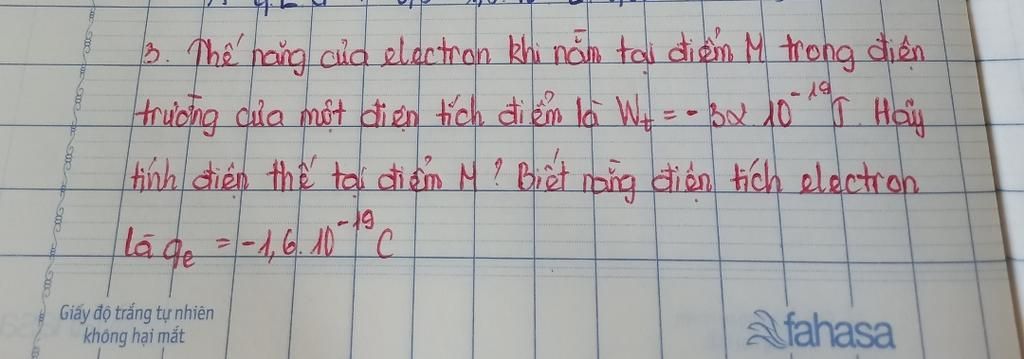 3. Thế năng của electron khi nằm tại điểm M trong điện
trường của một điện tích điểm là Wt = -32.10^-19 J. Hãy
tính điện thế tại điểm M? Biết rằng điện tích electron
là qe = -1,6.10^-19 C
Giấy độ trắng tự nhiên
không hại mắt
fahasa